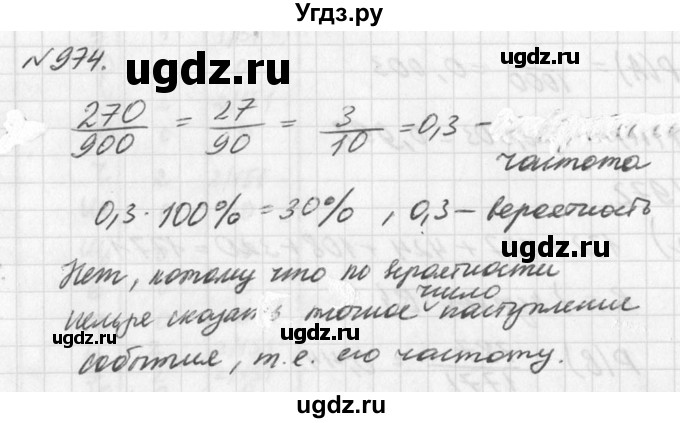 Угдз.ру
№974.
ugdz.ru ugdz.ru
270/900 = 27/90 = 3/10 = 0,3 –
частота
0,3 · 100% = 30% , 0,3 – вероятность
Нет, потому что по вероятности
нельзя сказать точное число наступление
события, т.е. его частоту.
ugdz.ru ugdz.ru
ugdz.ru